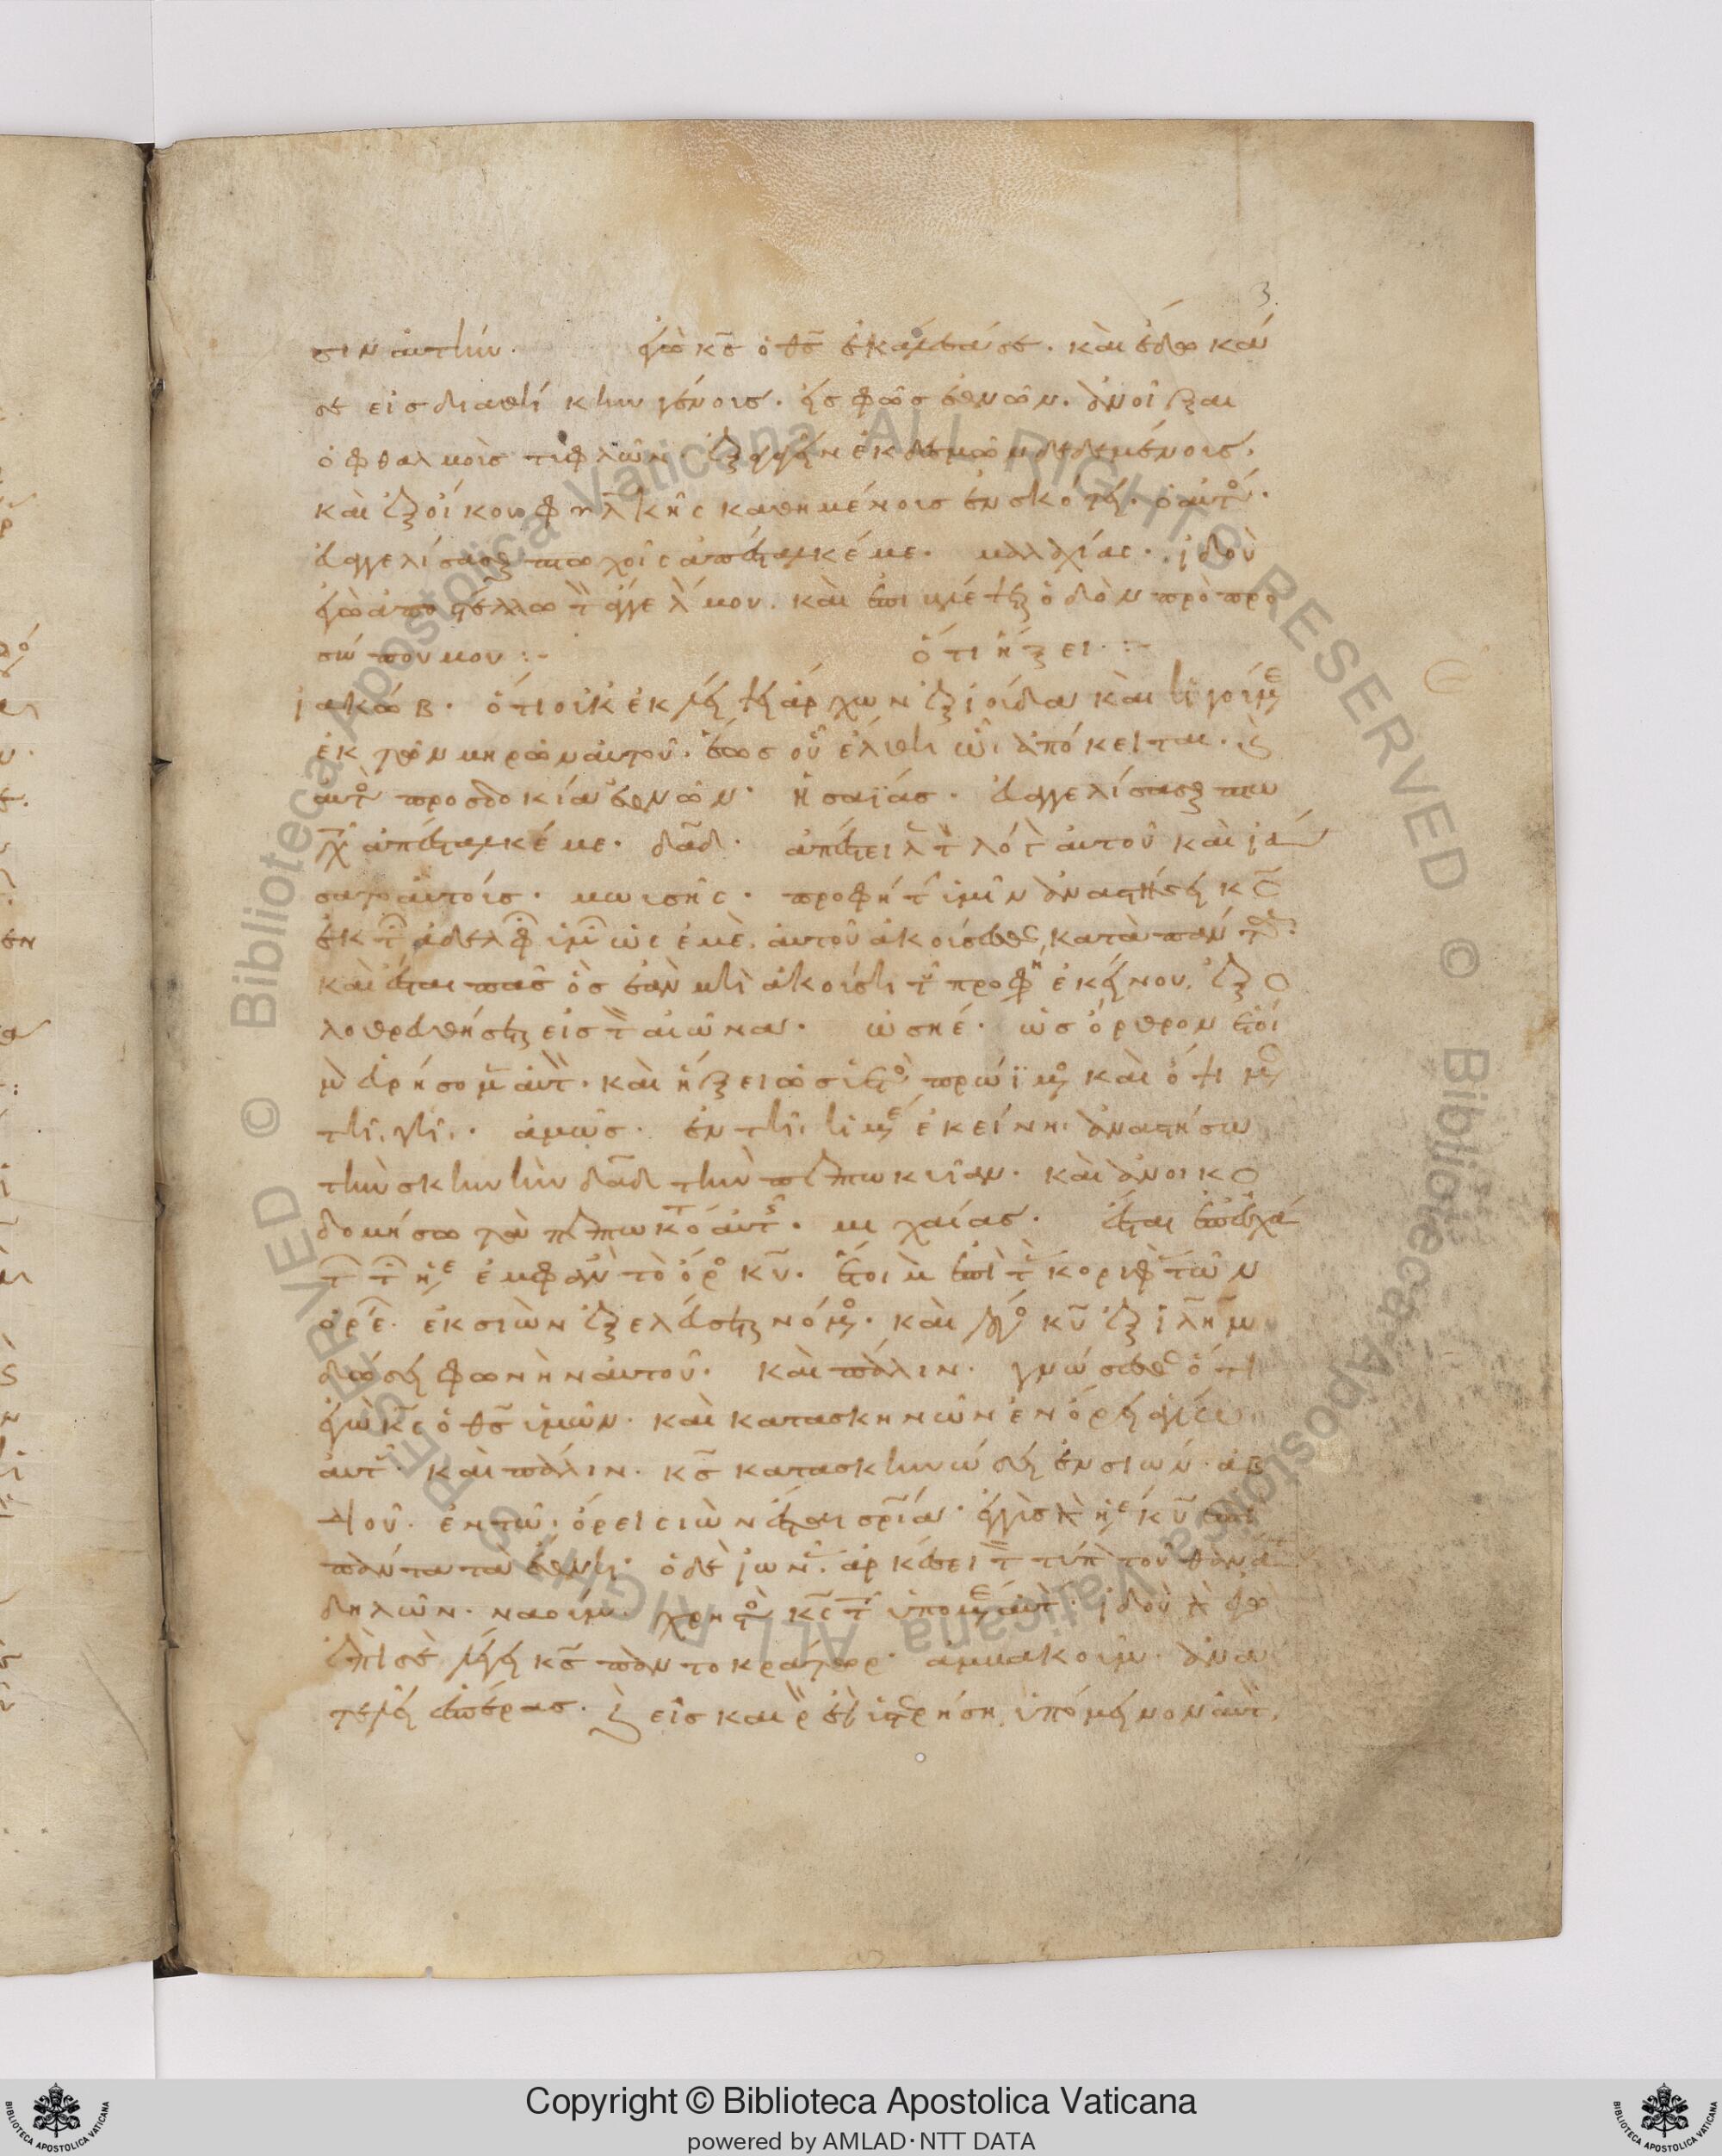 3.
σιν αὐτήν. ἐγὼ κ̅ς̅ ὁ θ̅ς̅ ἐκάλεσά σε. καὶ ἔδωκά
σε εἰς διαθήκην γένους. εἰς φῶς ἐθνῶν. ἀνοῖξαι
ὀφθαλμοὺς τυφλῶν. ἐξαγαγεῖν ἐκ δεσμῶν δεδεμένους.
καὶ ἐξ οἴκου φυλακῆς καθημένους ἐν σκότει. ὁ αὐτός.
εὐαγγελίσασθαι πτωχοῖς ἀπέσταλκέ με. μαλαχίας. ἰδοὺ
ἐγὼ ἀποστέλλω τὸν ἄγγελόν μου. καὶ ἐπιβλέψεται ὁδὸν πρὸ προ
σώπου μου :-
ὅτι ἥξει :-
ἰακώβ. ὅτι οὐκ ἐκλείψει ἄρχων ἐξ ἰούδα καὶ ἡγούμενος
ἐκ τῶν μηρῶν αὐτοῦ. ἕως οὗ ἔλθῃ ὧι ἀπόκειται. καὶ
αὐτὸς προσδοκία ἐθνῶν. ἡσαΐας. εὐαγγελίσασθαι πτω
χοῖς ἀπέσταλκέ με. δα̅δ̅. ἀπέστειλε τὸν λόγον αὐτοῦ καὶ ἰά
σατο αὐτούς. μωυσῆς. προφήτην ὑμῖν ἀναστήσει κ̅ς̅
ἐκ τῶν ἀδελφῶν ὑμῶν ὡς ἐμέ. αὐτοῦ ἀκούσεσθε κατὰ πάντα.
καὶ ἔσται πᾶς ὃς ἐὰν μὴ ἀκούσῃ τοῦ προφήτου ἐκείνου. ἐξο
λοθρευθήσεται εἰς τὸν αἰῶνα. ὠσηέ. ὡς ὄρθρον ἕτοι
μον εὑρήσομεν αὐτόν. καὶ ἥξει ὡς ὑετὸς πρώϊμος καὶ ὄψιμος
τῆι γῆι. ἀμώς. ἐν τῆι ἡμέρᾳ ἐκείνηι ἀναστήσω
τὴν σκηνὴν δα̅δ̅ τὴν πεπτωκυῖαν. καὶ ἀνοικο
δομήσω τὰ πεπτωκότα αὐτῆς. μιχαίας. ἔσται ἐπ ἐσχά
των τῶν ἡμερῶν ἐμφανὲς τὸ ὄρος κ̅υ̅. ἕτοιμον ἐπὶ τὰς κορυφὰς τῶν
ὀρέων. ἐκ σιὼν ἐξελεύσεται νόμος. καὶ λόγος κ̅υ̅ ἐξ ἰ̅λ̅η̅μ̅
δώσει φωνὴν αὐτοῦ. καὶ πάλιν. γνώσεσθε ὅτι
ἐγὼ κ̅ς̅ ὁ θ̅ς̅ ὑμῶν. καὶ κατασκηνῶν ἐν ὄρει ἁγίω
αὐτοῦ. καὶ πάλιν. κ̅ς̅ κατασκηνώσει ἐν σιών. ἀβ
διοῦ. ἐν τῶι ὄρει σιὼν ἔσται σ̅ρ̅ία. ἐγγὺς ἡ ἡμέρα κ̅υ̅ ἐπὶ
πάντα τὰ ἔθνη. ὁ δὲ ἰωνᾶς ἀρκέσει τὸν τύπον τοῦ θανάτου
δηλῶν. ναούμ. χρηστὸς κ̅ς̅ τοῖς ὑπομένουσιν αὐτόν. ἰδοὺ ἐγὼ
ἐπὶ σὲ λέγει κ̅ς̅ παντοκράτωρ. ἀμβακούμ. ἀνα
τελεῖ εἰς πέρας. καὶ εἰς καιρὸν ἐὰν ὑστερήσῃ ὑπόμεινον αὐτόν.
Copyright © Biblioteca Apostolica Vaticana
powered by AMLAD·NTT DATA